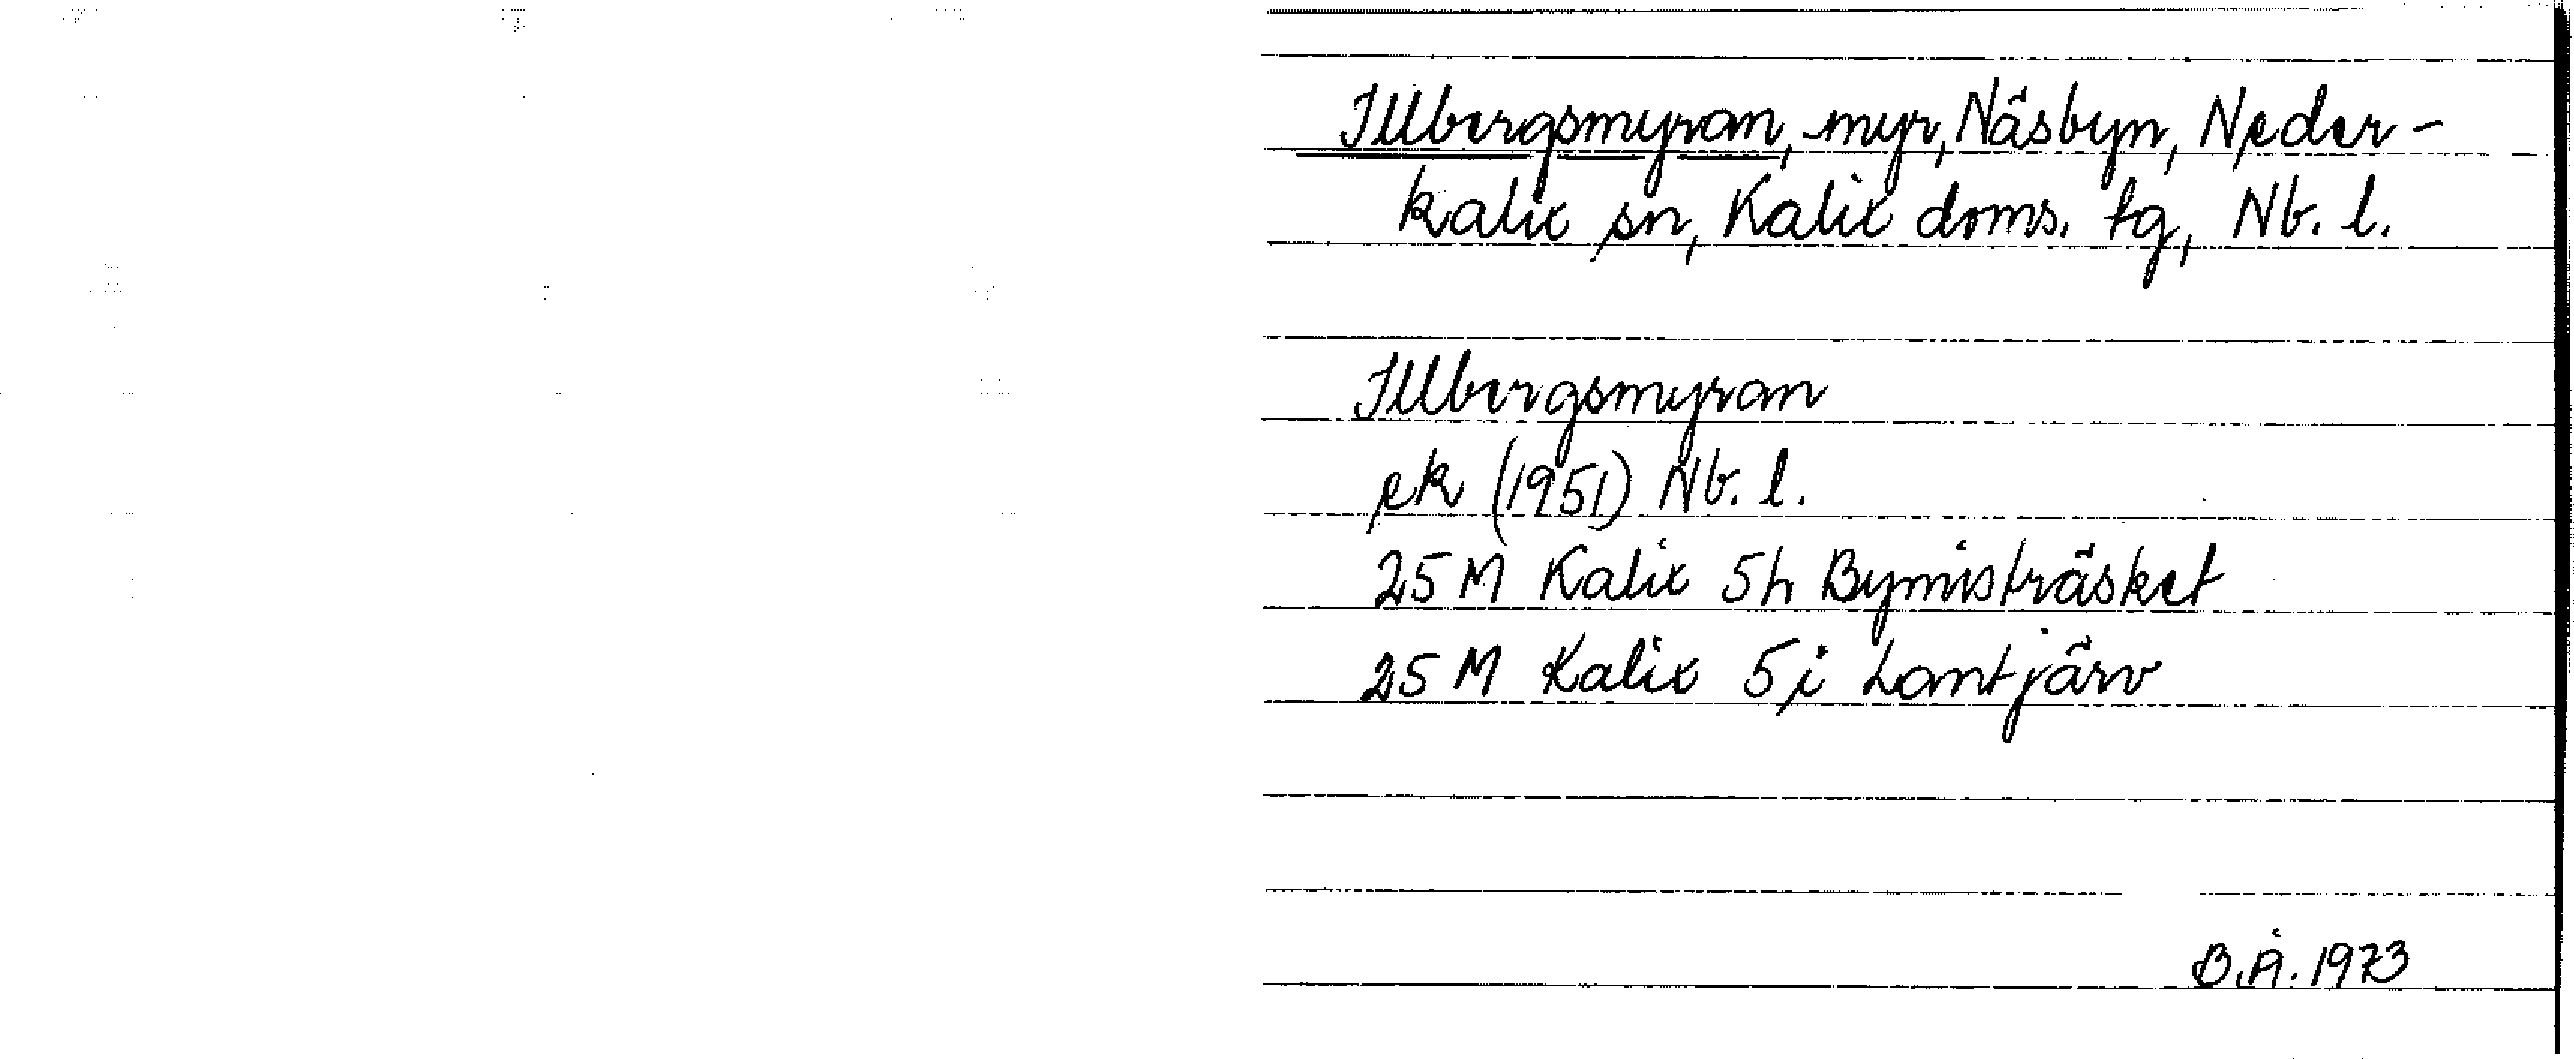 Illbergsmyran, myr, Näsbyn, Neder-
kalix sn, Kalix doms. tg, Nb. l.
Illbergsmyran
ek (1951) Nb. l.
25 M Kalix 5h Bymisträsket
25 M Kalix 5i Lantjärv
B.Å. 1973